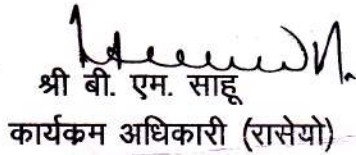 श्री बी. एम. साहू
कार्यक्रम अधिकारी (रासेयो)